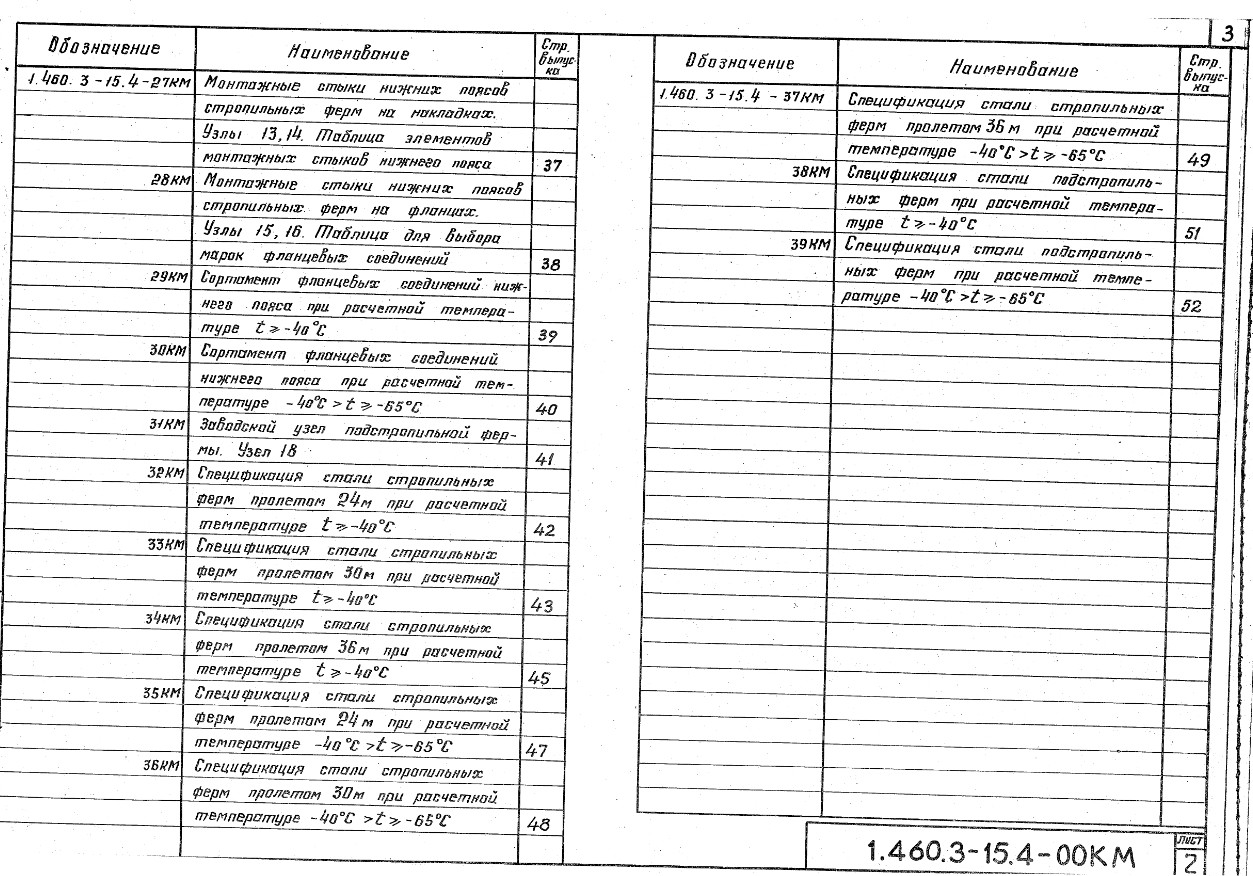 3
Обозначение Наименование Стр. выпуска
1.460.3-15.4-27КМ Монтажные стыки нижних поясов
стропильных ферм на накладках.
Узлы 13,14. Таблица элементов
монтажных стыков нижнего пояса 37
28КМ Монтажные стыки нижних поясов
стропильных ферм на фланцах.
Узлы 15,16. Таблица для выбора
марок фланцевых соединений 38
29КМ Сортамент фланцевых соединений ниж-
него пояса при расчетной темпера-
туре t ⩾ -40°C 39
30КМ Сортамент фланцевых соединений
нижнего пояса при расчетной тем-
пературе -40°C > t ⩾ -65°C 40
31КМ Заводской узел подстропильной фер-
мы. Узел 18 41
32КМ Спецификация стали стропильных
ферм пролетом 24м при расчетной
температуре t ⩾ -40°C 42
33КМ Спецификация стали стропильных
ферм пролетом 30м при расчетной
температуре t ⩾ -40°C 43
34КМ Спецификация стали стропильных
ферм пролетом 36м при расчетной
температуре t ⩾ -40°C 45
35КМ Спецификация стали стропильных
ферм пролетом 24м при расчетной
температуре -40°C > t ⩾ -65°C 47
36КМ Спецификация стали стропильных
ферм пролетом 30м при расчетной
температуре -40°C > t ⩾ -65°C 48
Обозначение Наименование Стр. выпуска
1.460.3-15.4-37КМ Спецификация стали стропильных
ферм пролетом 36м при расчетной
температуре -40°C > t ⩾ -65°C 49
38КМ Спецификация стали подстропиль-
ных ферм при расчетной темпера-
туре t ⩾ -40°C 51
39КМ Спецификация стали подстропиль-
ных ферм при расчетной темпе-
ратуре -40°C > t ⩾ -65°C 52
1.460.3-15.4-00КМ
Лист
2